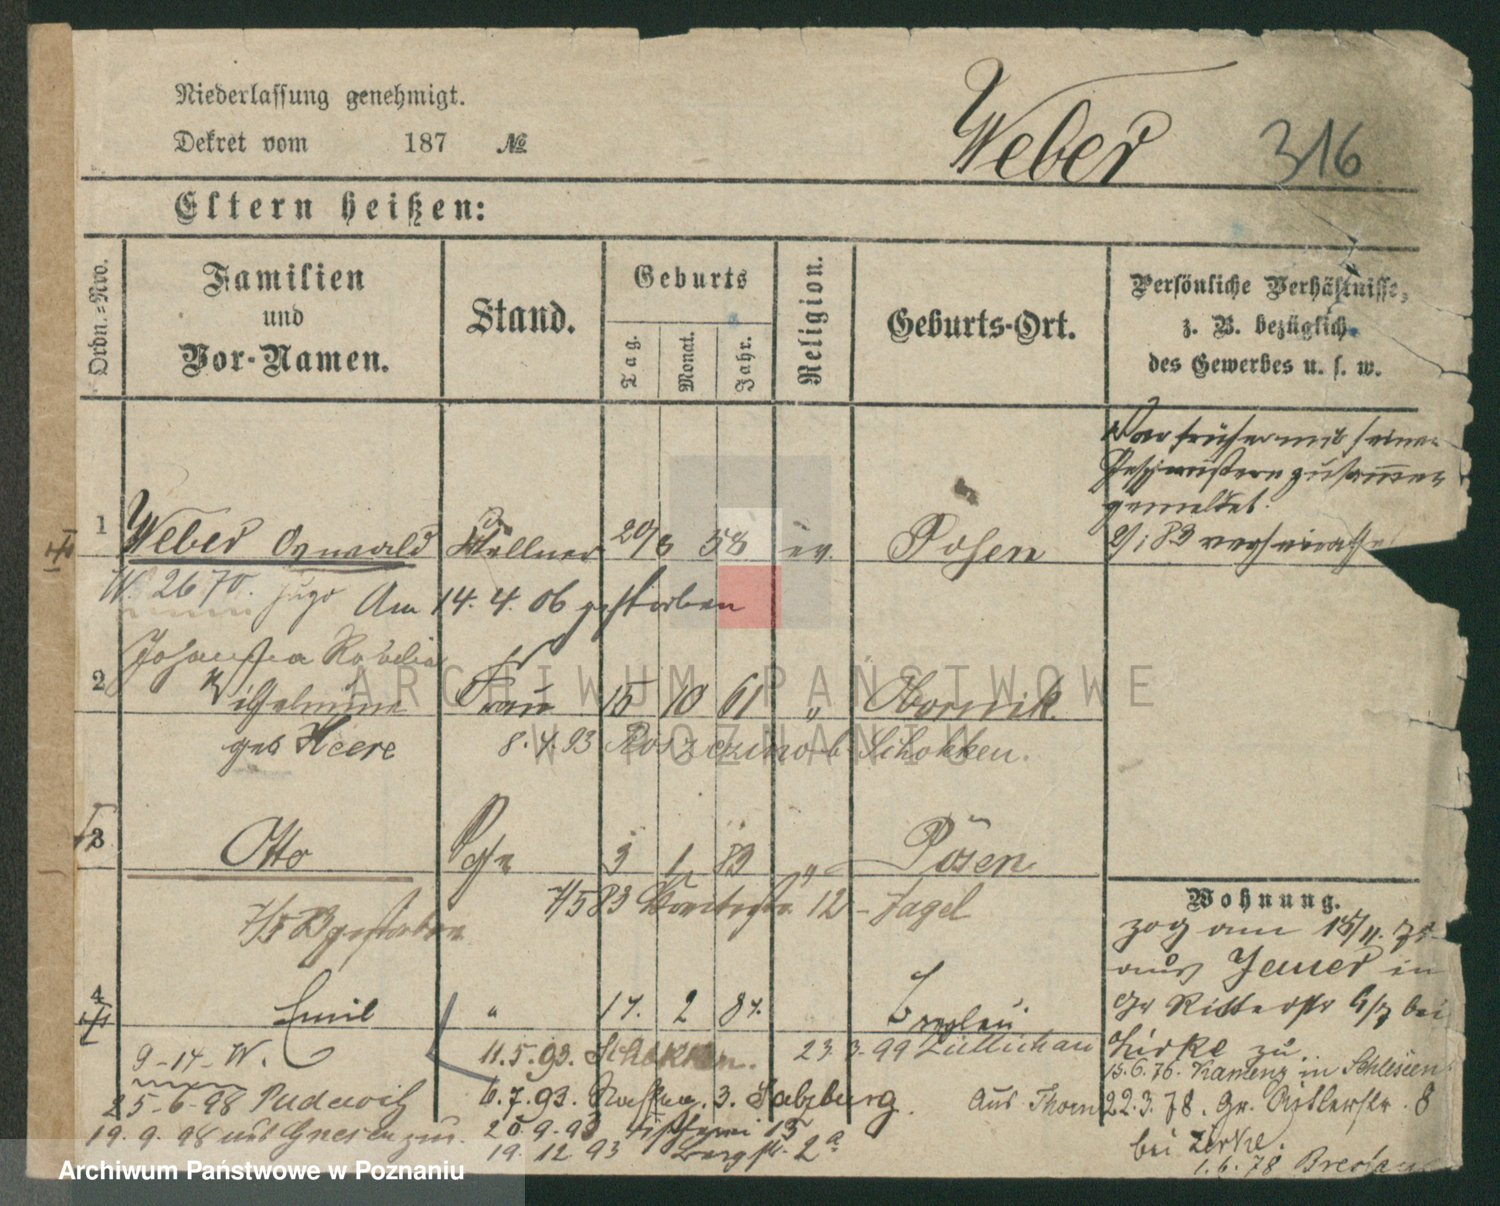 Niederlassung genehmigt.
Dekret vom 187 №
Weber 316
Eltern heißen:
Ordn.=Nro.
Familien und Vor-Namen.
Stand.
Geburts
Tag.
Monat.
Jahr.
Religion.
Geburts-Ort.
Persönliche Verhältnisse,
z. B. bezüglich
des Gewerbes u. s. w.
War früher mit seinen
Geschwistern zusammen
gemeldet.
1 Weber Oswald Kellner 20/8 58 ev. Posen
2/1 83 verheirathe
W. 2670. Hugo Am 14. 4. 06 gestorben
Johanna
2 Wilhelmine Frau 15 10 61 " Obornik.
geb Heere 8. 4. 93 b Schokken.
3 Otto 3 1 83 " Posen
7/5 83 12 - Jagel
7/5 83 gestorben
Wohnung.
zog am 15/11. 75
aus Jauer in
Gr Ritterstr bei
Zirke zu.
15.6.76. Kamenz in Schlesien
4 Emil " 17. 2 87. Breslau
9-14-W. 11.5.93. Schokken. 23.3.99 Züllichau
25-6-98 Pudewitz 6.7.93. 3. Salzburg. Aus Thorn 22.3.78. Gr. Ritterstr. 8
19. 9. 98 aus Gnesen zur. 20.9.93 15
bei Zirke.
19. 12 93 Bergstr. 2a
1.6.78 Breslau
ARCHIWUM PAŃSTWOWE
W POZNANIU
Archiwum Państwowe w Poznaniu